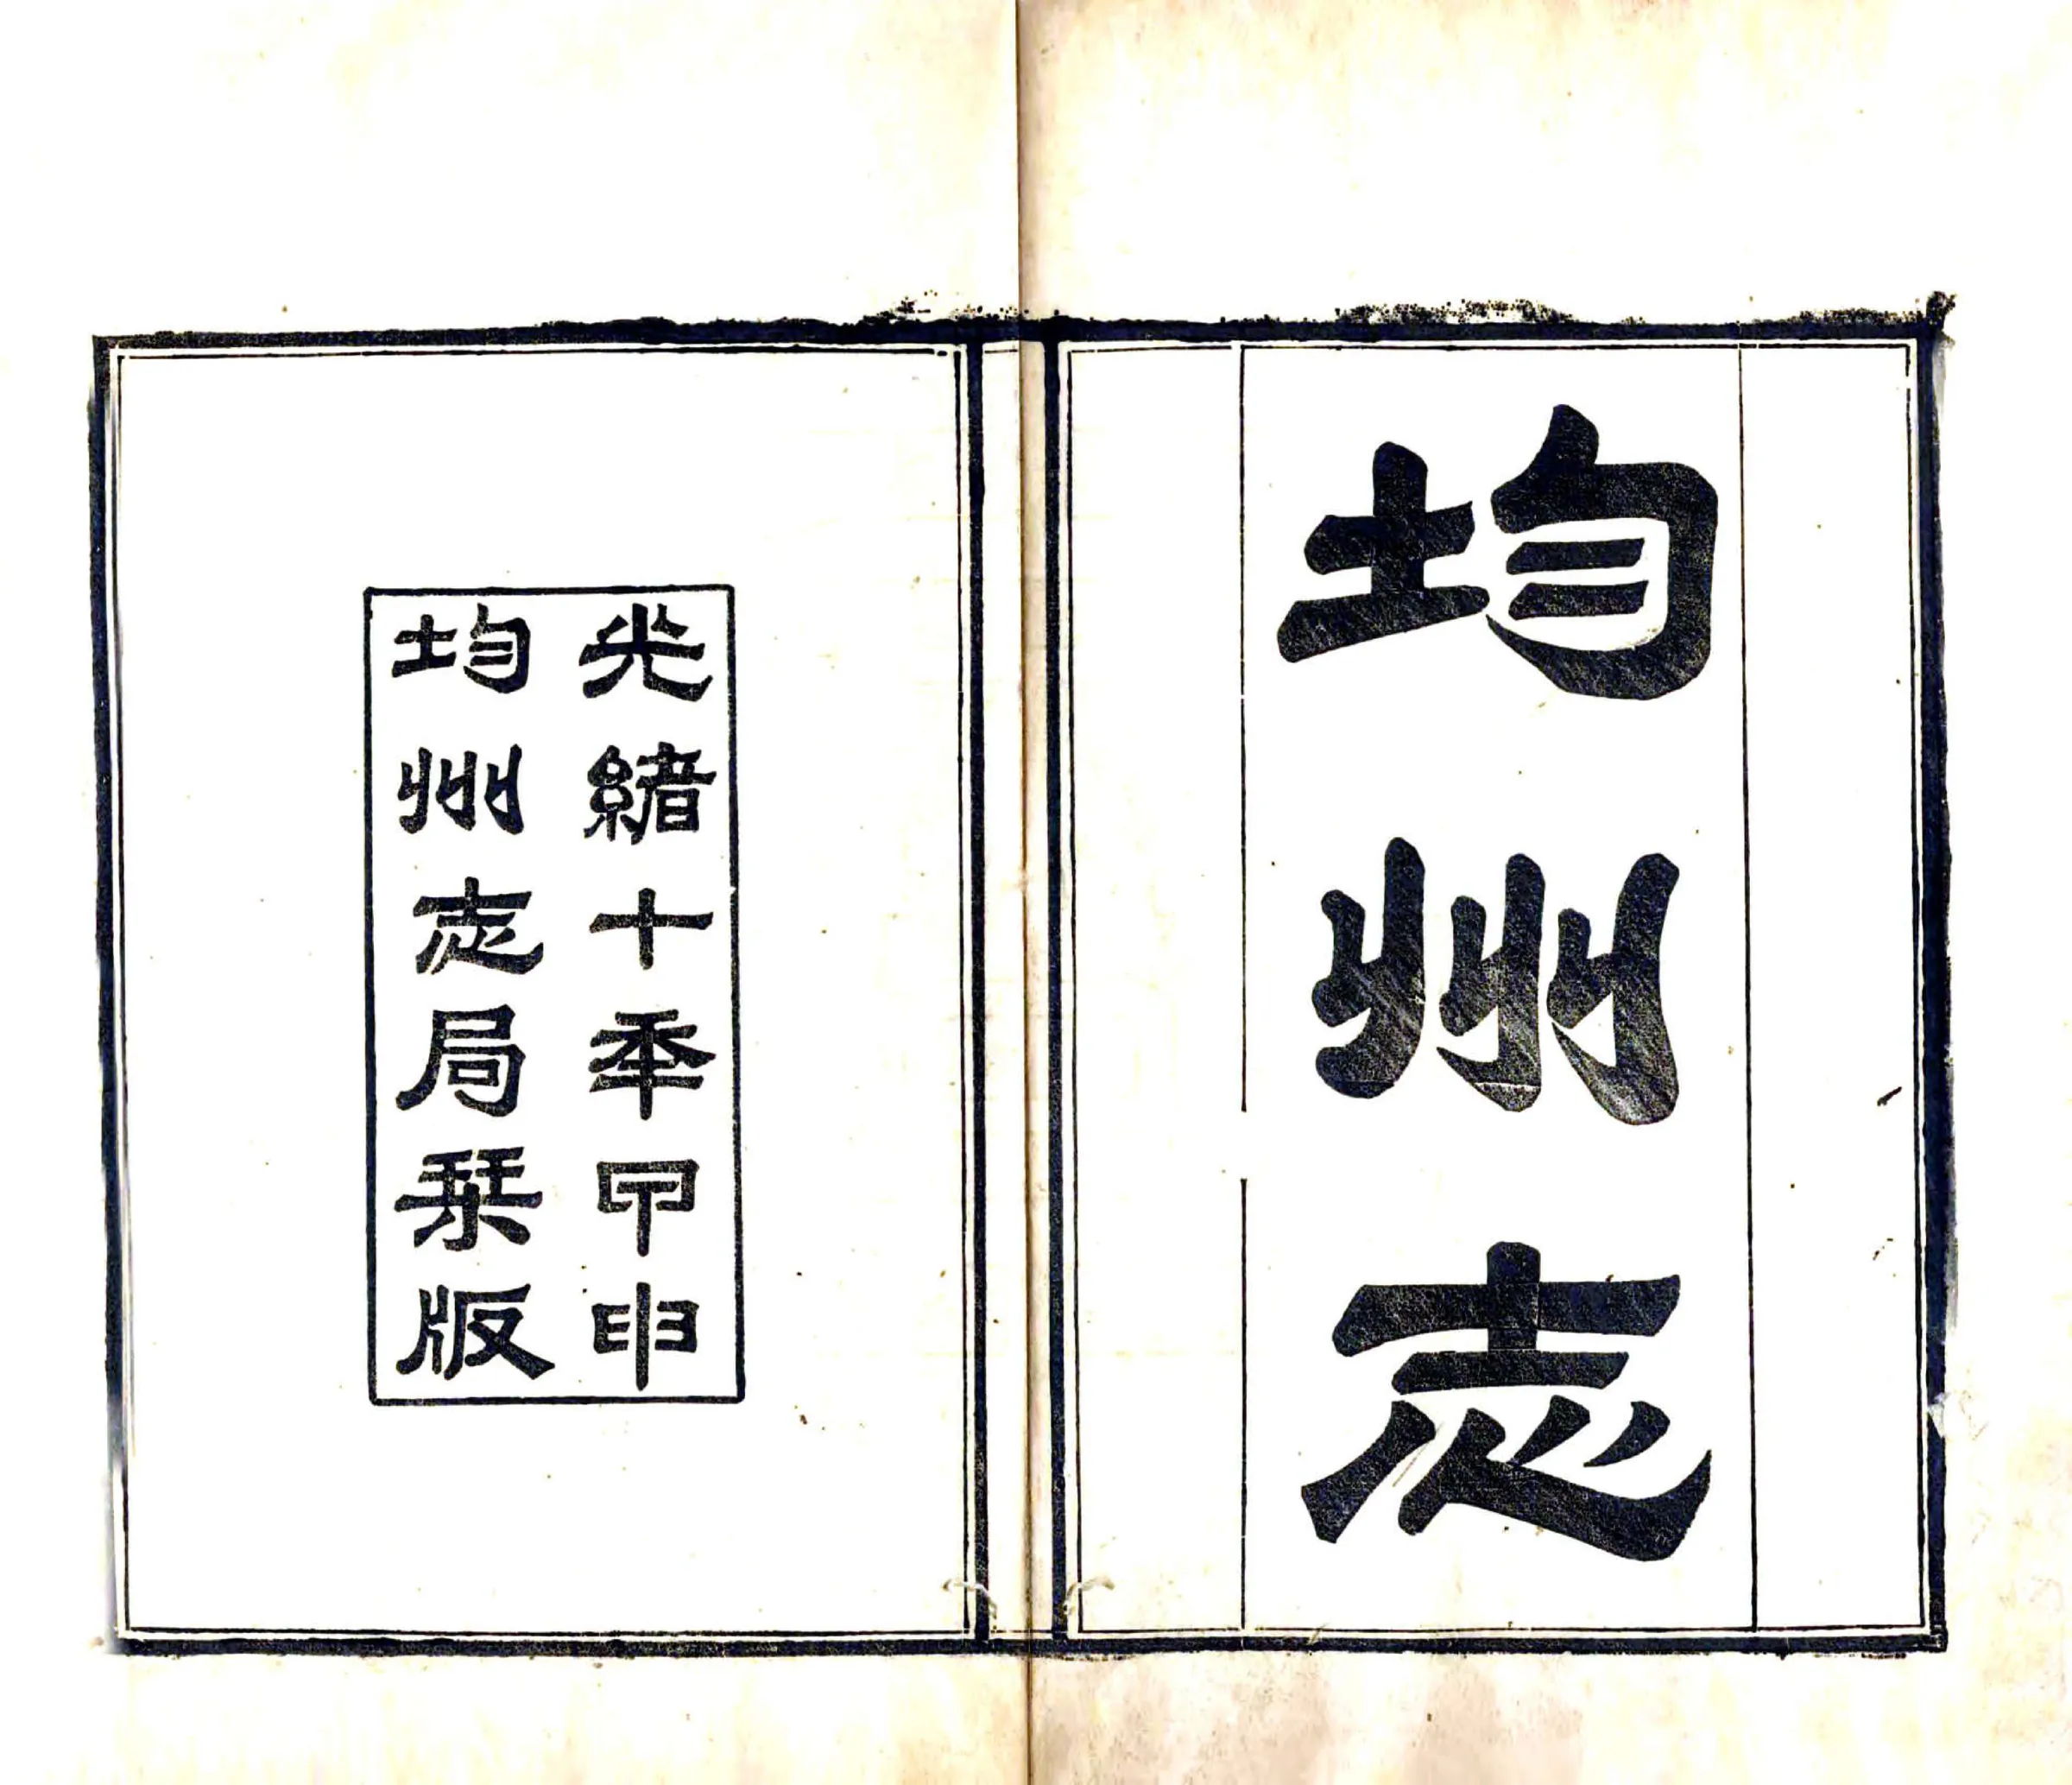 均州志
光緒十年甲申
均州志局栞版